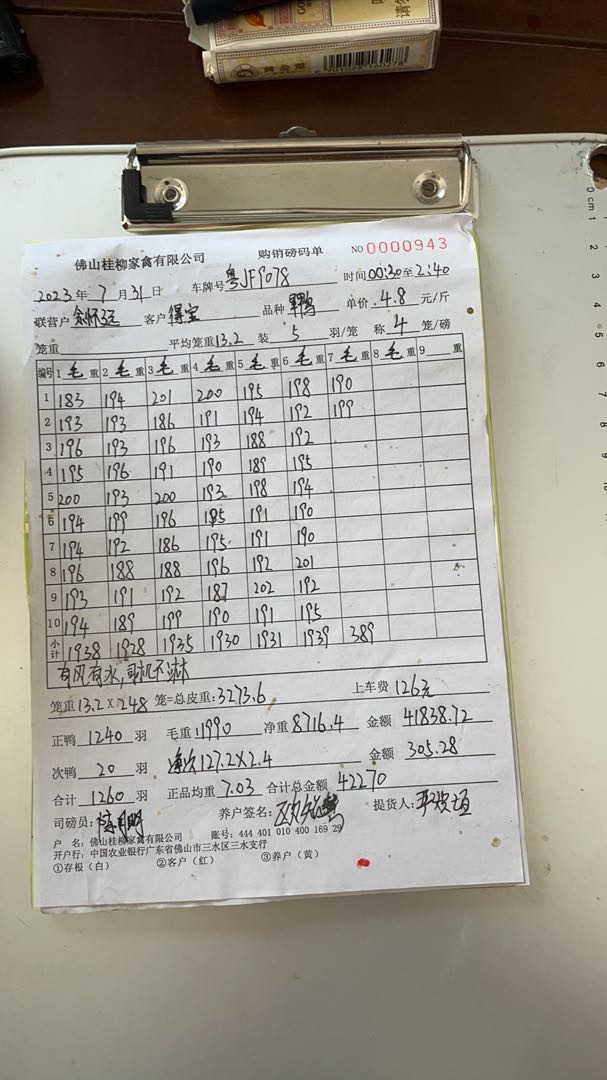 佛山桂柳家禽有限公司 购销磅码单 NO 0000943
2023年7月31日 车牌号 粤JF9078 时间 00:30至2:40
联营户 客户 得宝 品种 单价 4.8 元/斤
笼重 平均笼重 13.2 装 5 羽/笼 称 4 笼/磅
编号 1毛重 2毛重 3毛重 4毛重 5毛重 6毛重 7毛重 8毛重 9 重
1 183 194 201 200 195 198 190
2 193 193 186 191 194 192 199
3 196 193 196 193 188 192
4 195 196 191 190 189 195
5 200 193 200 193 198 194
6 194 199 196 195 191 190
7 194 192 186 195 191 190
8 196 188 188 196 192 201
9 193 191 192 187 202 192
10 194 189 199 190 191 195
小计 1938 1928 1935 1930 1931 1939 389
有风有水,司机不淋
笼重 13.2×248 笼=总皮重:3273.6 上车费 126元
正鸭 1240 羽 毛重:11990 净重:8716.4 金额 41838.72
次鸭 20 羽 127.2×2.4 金额 305.28
合计 1260 羽 正品均重 7.03 合计总金额 42270
司磅员: 养户签名: 提货人:
户 名:佛山桂柳家禽有限公司 账号:444 401 010 400 169 29
开户行:中国农业银行广东省佛山市三水区三水支行
①存根(白) ②客户(红) ③养户(黄)
0 cm 1